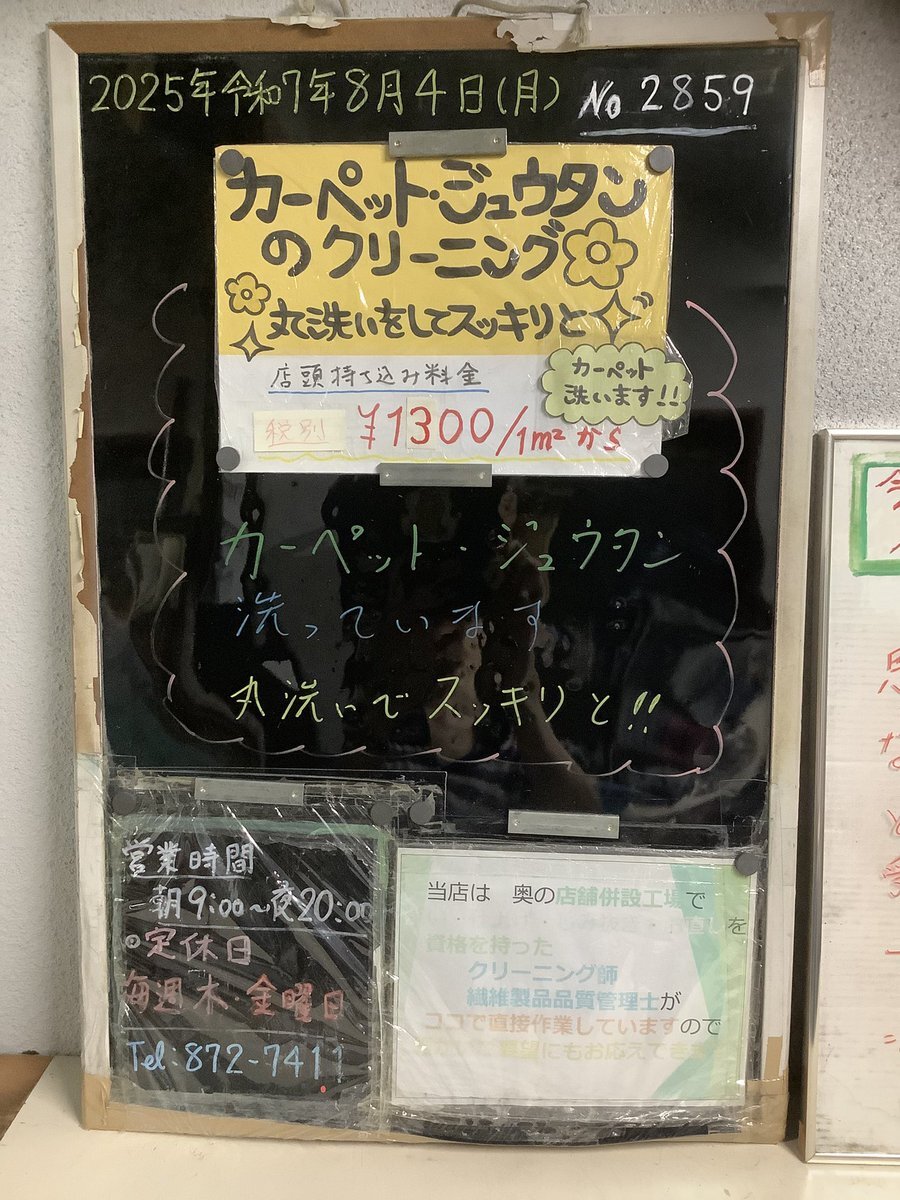 2025年令和7年8月4日(月) No 2859
カーペット・ジュウタン
のクリーニング
丸洗いをしてスッキリと
店頭持ち込み料金
カーペット
洗います!!
税別 ¥1300/1m²から
カーペット・ジュウタン
洗っています
丸洗いでスッキリと!!
営業時間
朝9:00〜夜20:00
定休日
毎週木・金曜日
Tel:872-7411
当店は 奥の店舗併設工場で
直しを
資格を持った
クリーニング師
繊維製品品質管理士が
ココで直接作業していますので
要望にもお応えでき